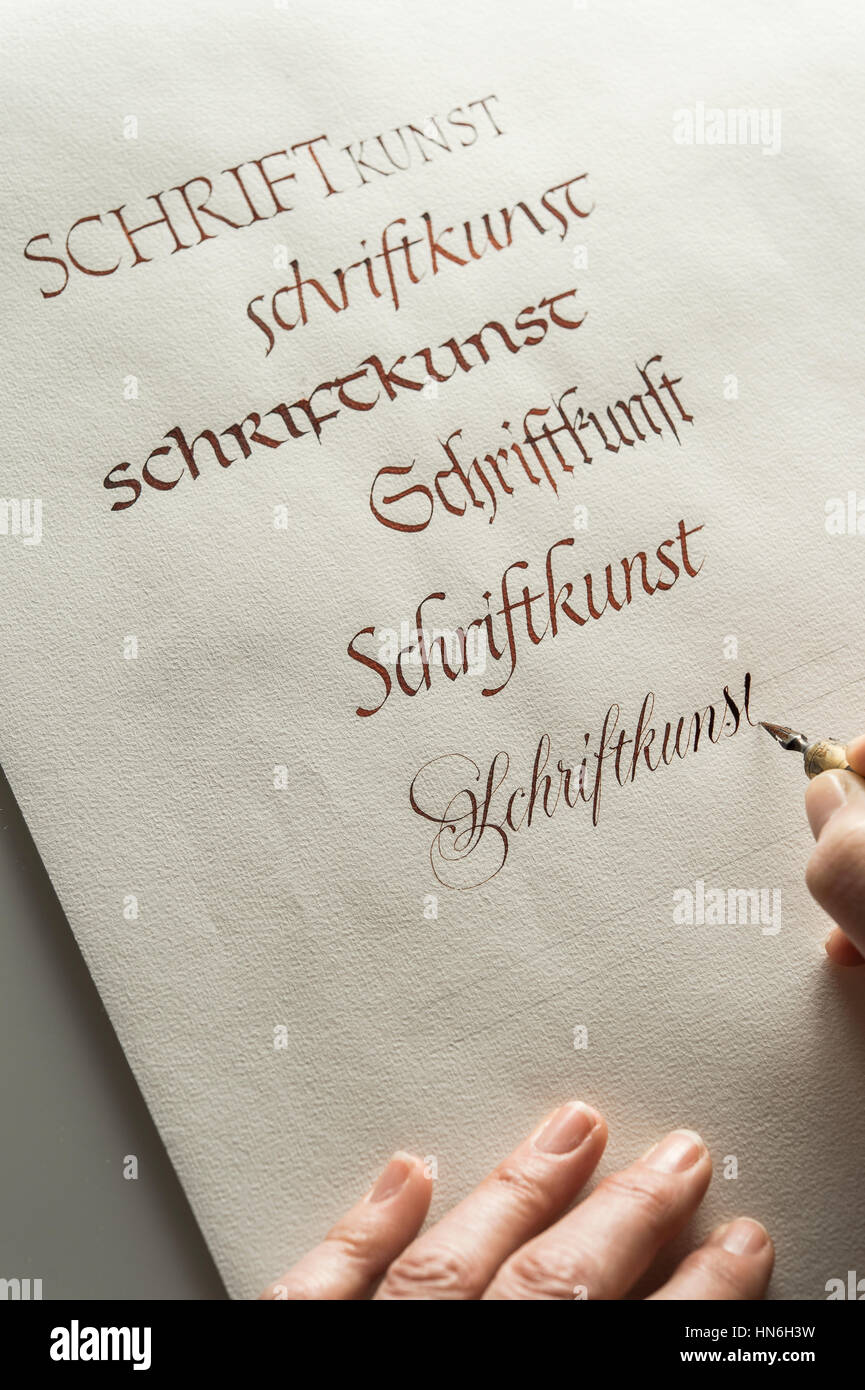 SCHRIFTKUNST
schriftkunst
schriftkunst
Schriftkunst
Schriftkunst
Schriftkunst
alamy
alamy
Image ID: HN6H3W
www.alamy.com